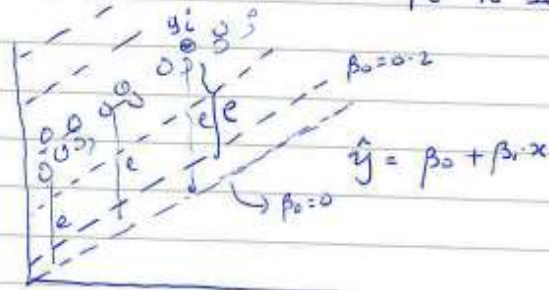 yi
β₀=0.2
e
e
e
e
ŷ = β₀ + β₁.x
β₀=0